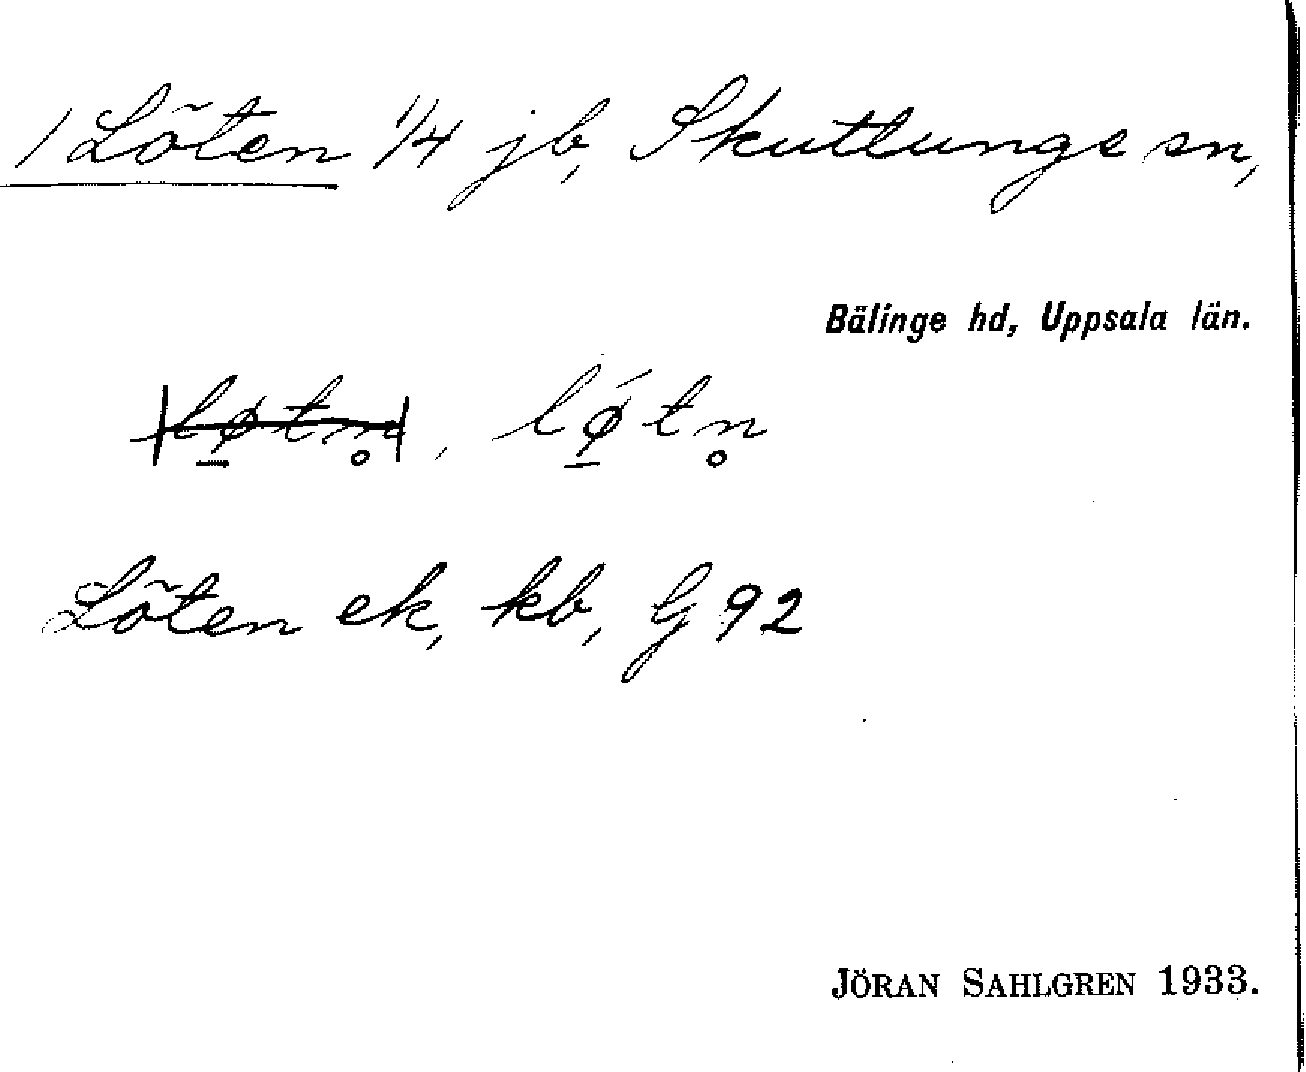 1 Löten 1/4 jb, Skuttunge sn,
Bälinge hd, Uppsala län.
lø̱tn̥, lǿ̱tn̥
Löten ek, kb, G 92
JÖRAN SAHLGREN 1933.